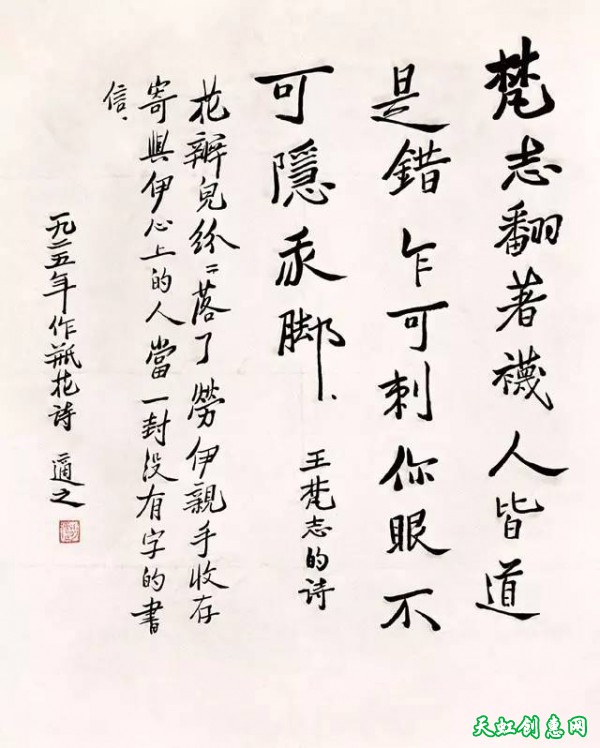 梵志翻著襪人皆道
是錯乍可刺你眼不
可隱我脚、
王梵志的詩
花瓣兒紛〃落了勞伊親手收存
寄與伊心上的人當一封没有字的書
信、
一九二五年作瓶花詩 適之
天虹创意网